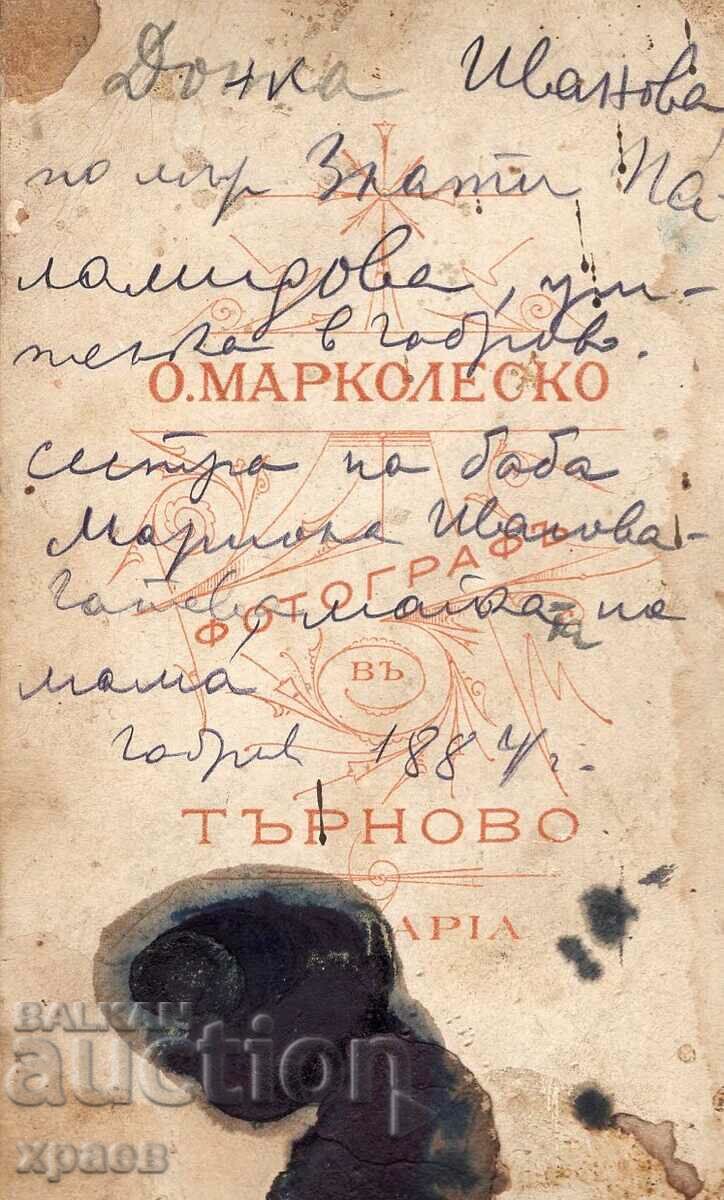 Донка Иванова
по мъж Злати Па
ламидова, учи-
телка в Габрово.
О. МАРКОЛЕСКО
сестра на баба
Мариока Иванова-
ФОТОГРАФЪ
Гатева, майка та на
ВЪ
мама
Габрово 1884 г.
ТЪРНОВО
АРІА
BALKAN
auction
храев